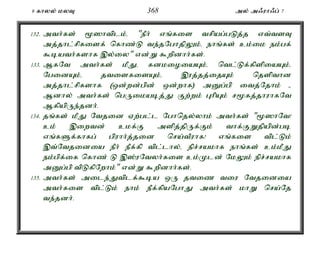 9 காலல் மலவு 368 அல் அஃராஃப் 7
132. அவர்கள் "மூஸாவிடம், "நீர் எங்களை வசியப்படுத்த எவ்வளவு
அத்தாட்சிகளைக் கொண்டு வந்தபோதிலும், நாங்கள் உம்மை நம்பக்
கூடியவர்களாக இல்லை" என்று கூறினார்கள்.
133. ஆகவே அவர்கள் மீது, கனமழையையும், வெட்டுக்கிளியையும்,
பேனையும், தவளைகளையும், இரத்தத்தையும் தெளிவான
அத்தாட்சிகளாக (ஒன்றன்பின் ஒன்றாக) அனுப்பி வைத்தோம் -
ஆனால் அவர்கள் பெருமையடித்து குற்றம் புரியும் சமூகத்தாராகவே
ஆகியிருந்தனர்.
134. தங்கள் மீது வேதனை ஏற்பட்ட போதெல்லாம் அவர்கள் "மூஸாவே!
உம் இறைவன் உமக்கு அளித்திருக்கும் வாக்குறுதியின்படி
எங்களுக்காகப் பிரார்த்தனை செய்வீராக! எங்களை விட்டும்
இவ்வேதனையை நீர் நீக்கி விட்டால், நிச்சயமாக நாங்கள் உம்மீது
நம்பிக்கை கொண் டு இஸ்ரவேலர்களை உம்முடன் மேலும் நிச்சயமாக
அனுப்பி விடுகிறோம்" என்று கூறினார்கள்.
135. அவர்கள் அடைந்துவிடக்கூடிய ஒரு தவணை வரை வேதனையை
அவர்களை விட்டும் நாம் நீக்கியபோது அவர்கள் மாறு செய்தே
வந்தனர்.